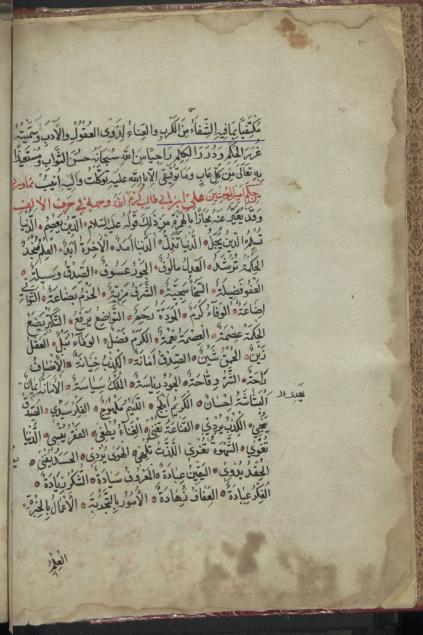 مكتفيا بما فيه الشفاء من الكرب والغناء لذوى العقول والآدب وسميته
غرر الحكم ودرر الكلم راجيا من الله سبحانه حسن الثواب ومستعيذا
به تعالى من كل عاب وما توفيقى الا بالله عليه توكلت واليه انيب
من حكم امير المؤمنين على ابن ابي طالب كرم الله وجهه في حرف الالف
وقد يعبر عنه مجازا بالهمزة من ذلك قوله عليه السلام الدين يعصم الدنيا
تسلم الدين يجل الدنيا تذل الدنيا امد الآخرة ابد العلم ينجد
الحكمة ترشد العدل مألوف الجور عسوف الصدق وسيلة
العفو فضيلة السخا سجية الشرف مزية الحزم بضاعة التوانى
اضاعة الوفاء كرم المودة رحم التواضع يرفع التكبر يضع
الحكمة عصمة العصمة نعمة الكرم فضل الوفاء نبل العقل
زين الحمق شين الصدق امانة الكذب خيانة الانصاف
راحة الشر وقاحة الجود رياسة الملك سياسة الامانة ايمان
البشاشة احسان الكريم ابلج اللئيم ملهوج الفكر يهدى الصدق
ينجى الكذب يردى القناعة تغنى الغناء يطغى الفقر ينسى الدنيا
تغوى الشهوة تغرى اللذة تلهى الهوى يردى الحسد يضنى
الحقد يذوى اليقين عبادة المعروف سيادة الشكر زيادة
الفكر عبادة العفاف زهادة الامور بالتجربة الاعمال بالخبرة
العلم